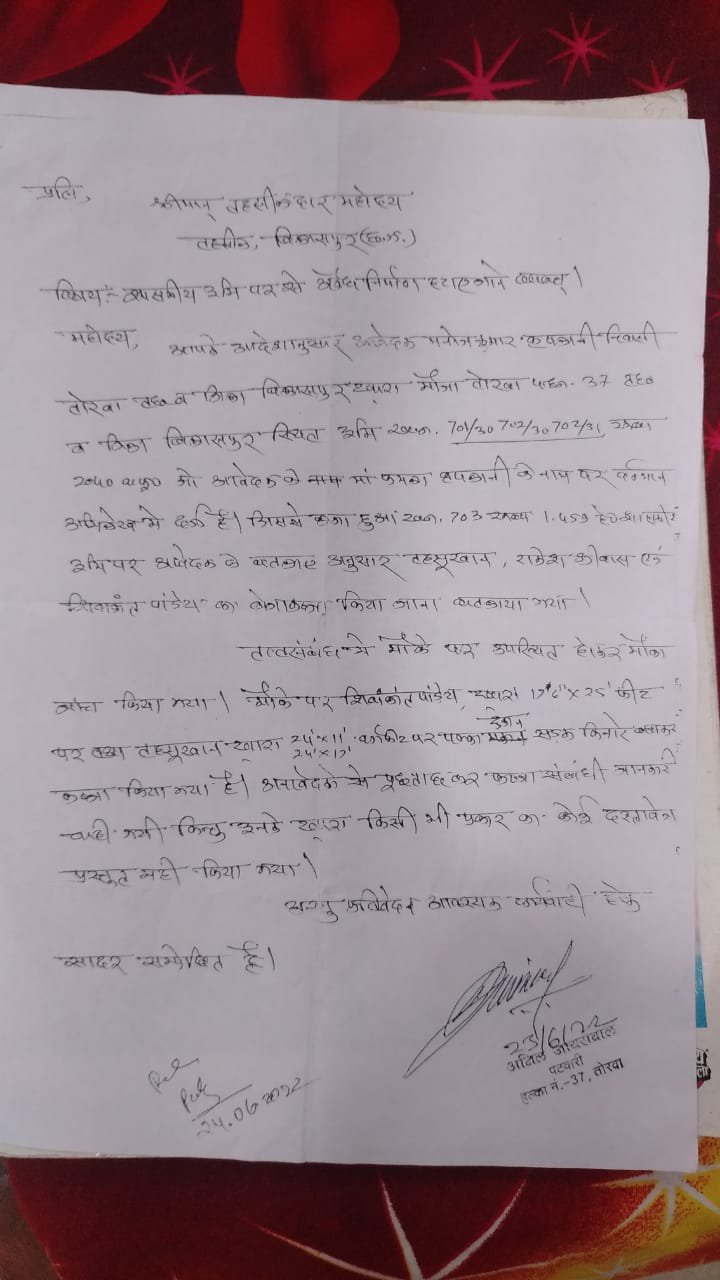 प्रति,
श्रीमान् तहसीलदार महोदय
तहसील, बिलासपुर(छ.ग.)
विषय:- शासकीय भूमि पर से अवैध निर्माण हटाए जाने बाबत्।
महोदय,
आपके आदेशानुसार आवेदक मनोज कुमार कृपलानी निवासी
तोरवा तह० व जिला बिलासपुर द्वारा मौजा तोरवा प.ह.न. 37 तह०
व जिला बिलासपुर स्थित भूमि ख.न. 701/30 702/30 702/31 रकबा
जो आवेदक के मां कमला कृपलानी के नाम पर वर्तमान
अभिलेख में दर्ज है। जिससे लगा हुआ ख.न. 703 रकबा 1.459 हे०
भूमि पर आवेदक के बतलाए अनुसार तहसूरखान, राकेश श्रीवास एवं
शिवाकांत पांडेय का बेजाकब्जा किया जाना बतलाया गया।
तत्संबंध में मौके पर उपस्थित होकर मौका
जांच किया गया। मौके पर शिवाकांत पांडेय द्वारा 17'6"x25' फीट
पर तथा तहसूरखान द्वारा 24'x11' 24'x17' पर पक्का दुकान सड़क किनारे बनाकर
कब्जा किया गया है। अनावेदकों से पूछताछ कर कब्जा संबंधी जानकारी
चाही गयी किन्तु इनके द्वारा किसी भी प्रकार का कोई दस्तावेज
प्रस्तुत नहीं किया गया।
प्रतिवेदन आवश्यक कार्यवाही हेतु
सादर सम्प्रेषित है।
23/6/22
अनिल जायसवाल
पटवारी
हल्का नं.-37, तोरवा
24.06.2022